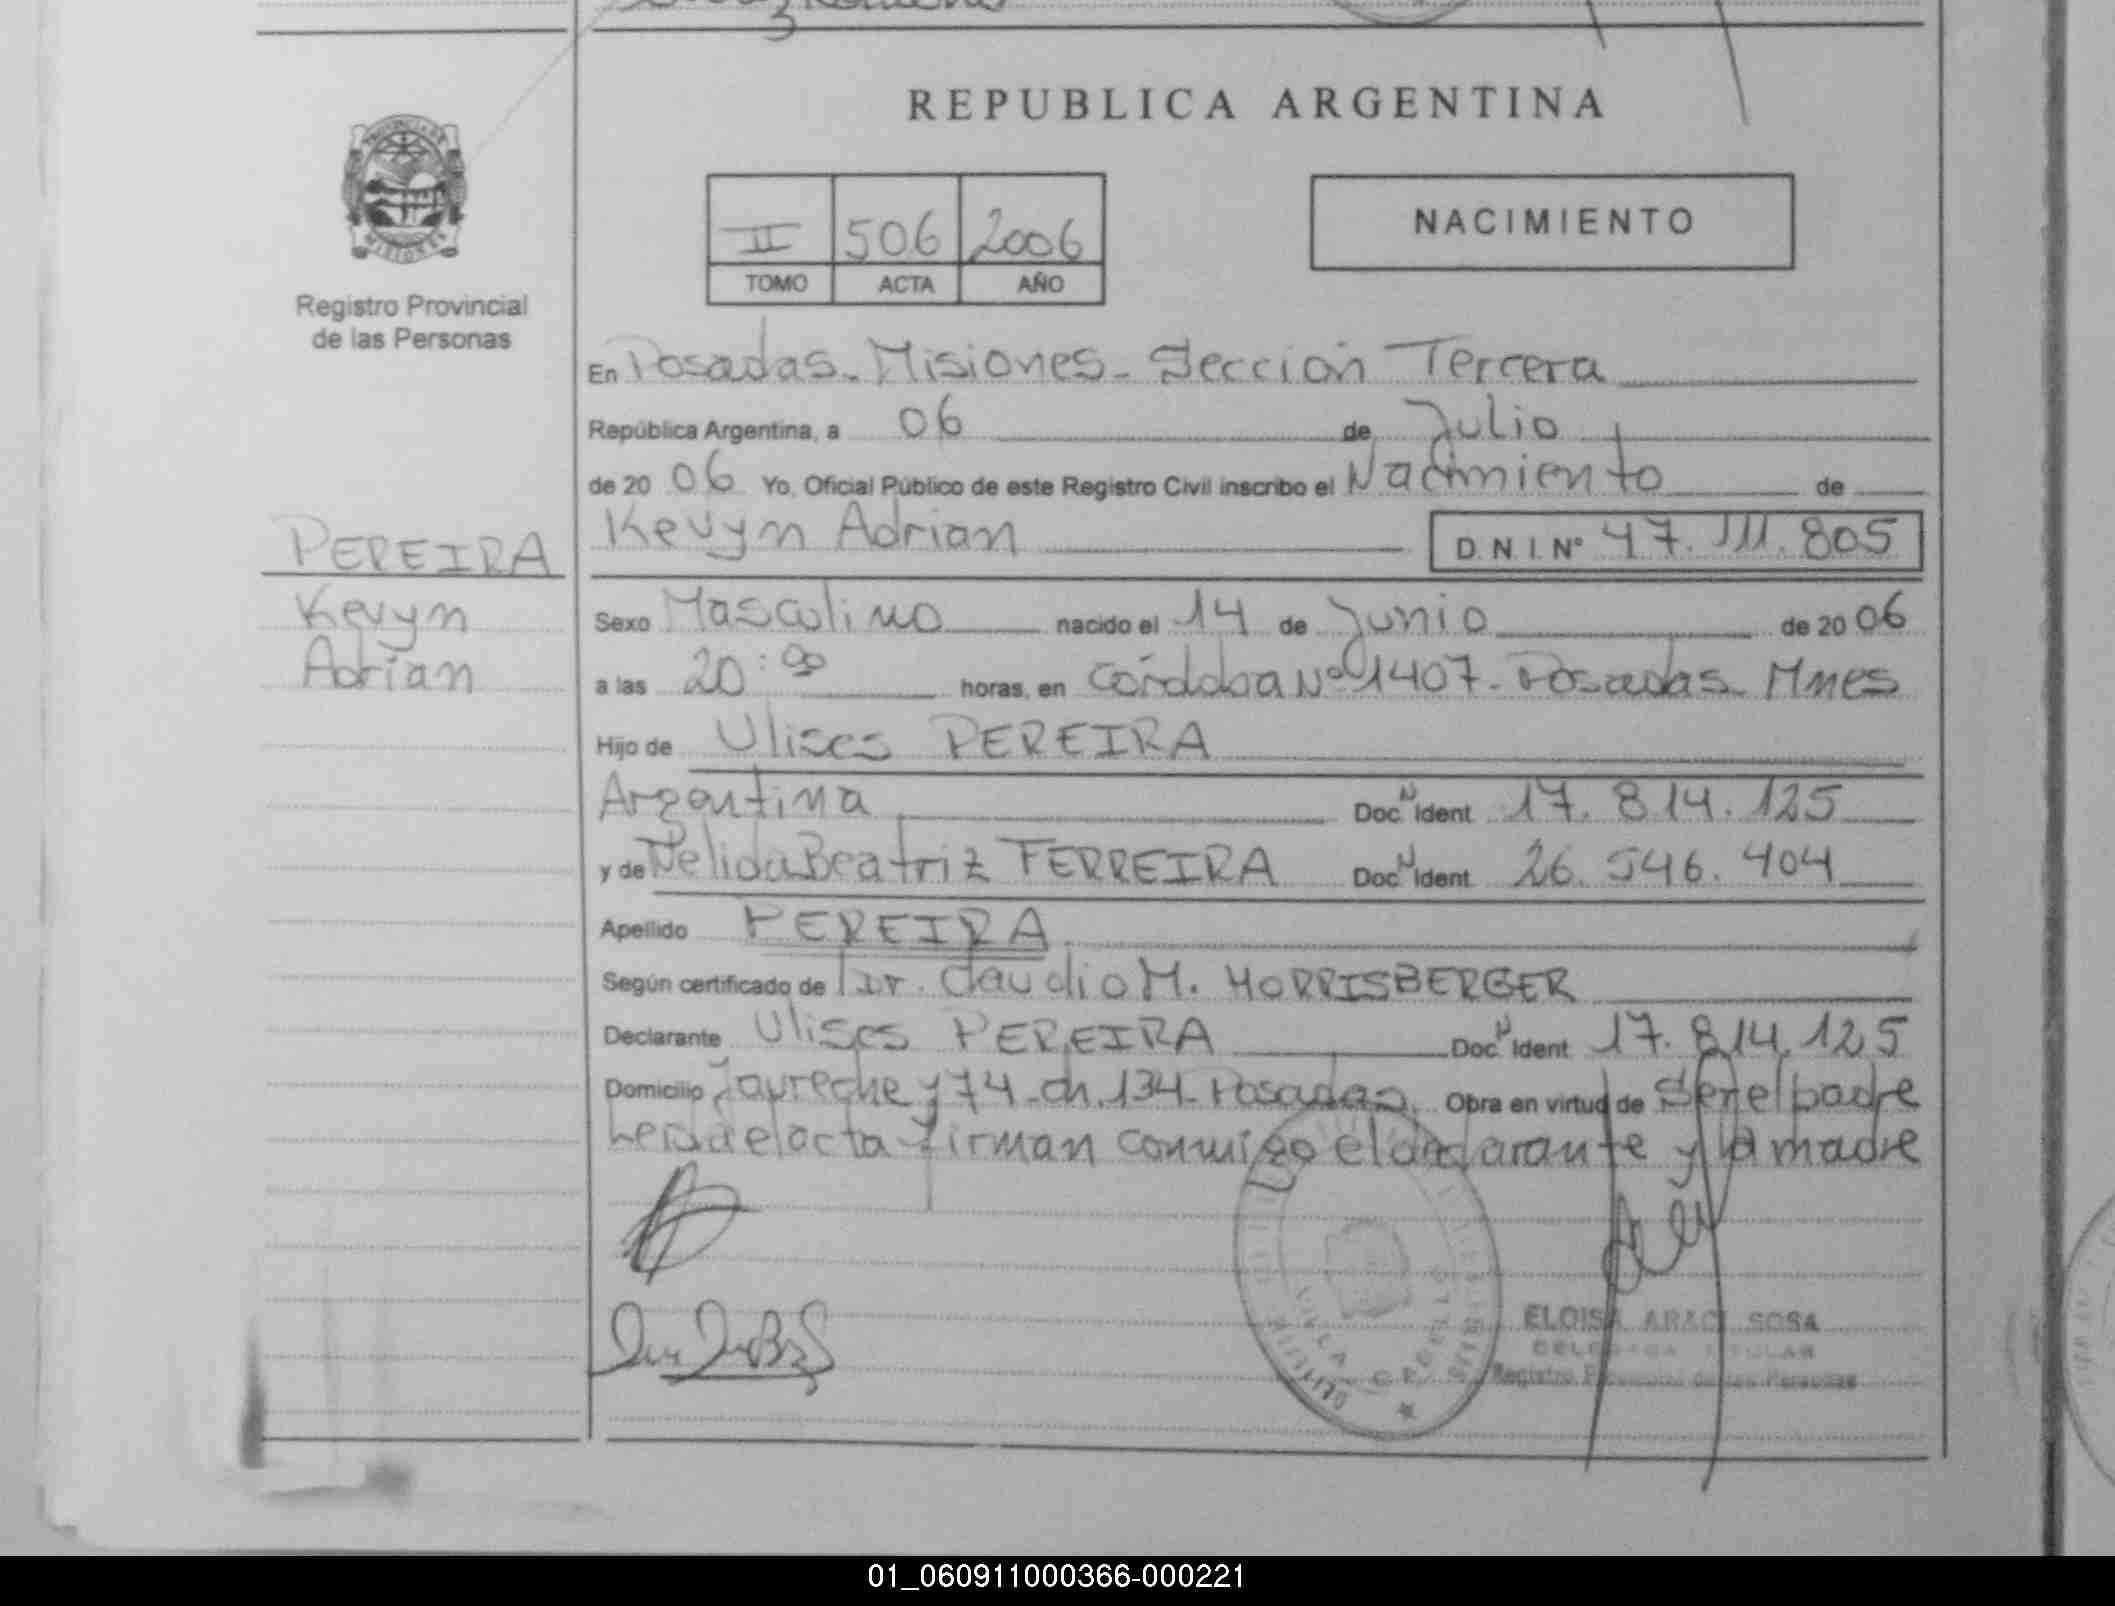 REPUBLICA ARGENTINA
PROVINCIA DE
MISIONES
Registro Provincial
de las Personas
II 506 2006
TOMO ACTA AÑO
NACIMIENTO
En Posadas - Misiones - Sección Tercera
República Argentina, a 06 de Julio
de 20 06 Yo, Oficial Público de este Registro Civil inscribo el Nacimiento de
Kevyn Adrian D.N.I. Nº 47.111.805
PEREIRA
Kevyn
Adrian
Sexo Masculino nacido el 14 de Junio de 20 06
a las 20:00 horas, en Córdoba Nº 1407 - Posadas - Mnes
Hijo de Ulises PEREIRA
Argentina Doc. N Ident 17.814.125
y de Nelida Beatriz FERREIRA Doc. N Ident 26.546.404
Apellido PEREIRA
Según certificado de Dr. Claudio M. MORRISBERGER
Declarante Ulises PEREIRA Doc. N Ident 17.814.125
Domicilio Jaureche y 74 - ch. 134 - Posadas. Obra en virtud de Ser el padre
Leida el acta firman conmigo el declarante y la madre
VILLA CABELLO
ELOISA SOSA
DELEGADA TITULAR
Registro Provincial de las Personas
01_060911000366-000221